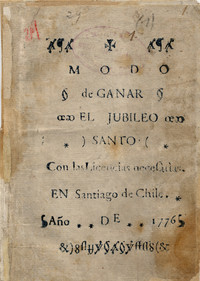 MODO
de GANAR
EL JUBILEO
) SANTO (
Con las Licencias necesarias.
EN Santiago de Chile.
Año . . DE . . 1776